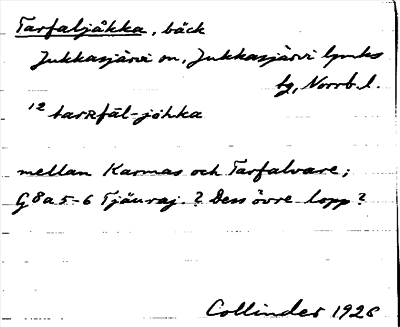 Tarfaljåkka, bäck
Jukkasjärvi sn, Jukkasjärvi lpmks
tg, Norrb. l.
12 tarRfāl-jåhka
mellan Karmas och Tarfalvare;
G8a5-6 Tjäuraj. ? Dess övre lopp?
Collinder 1928